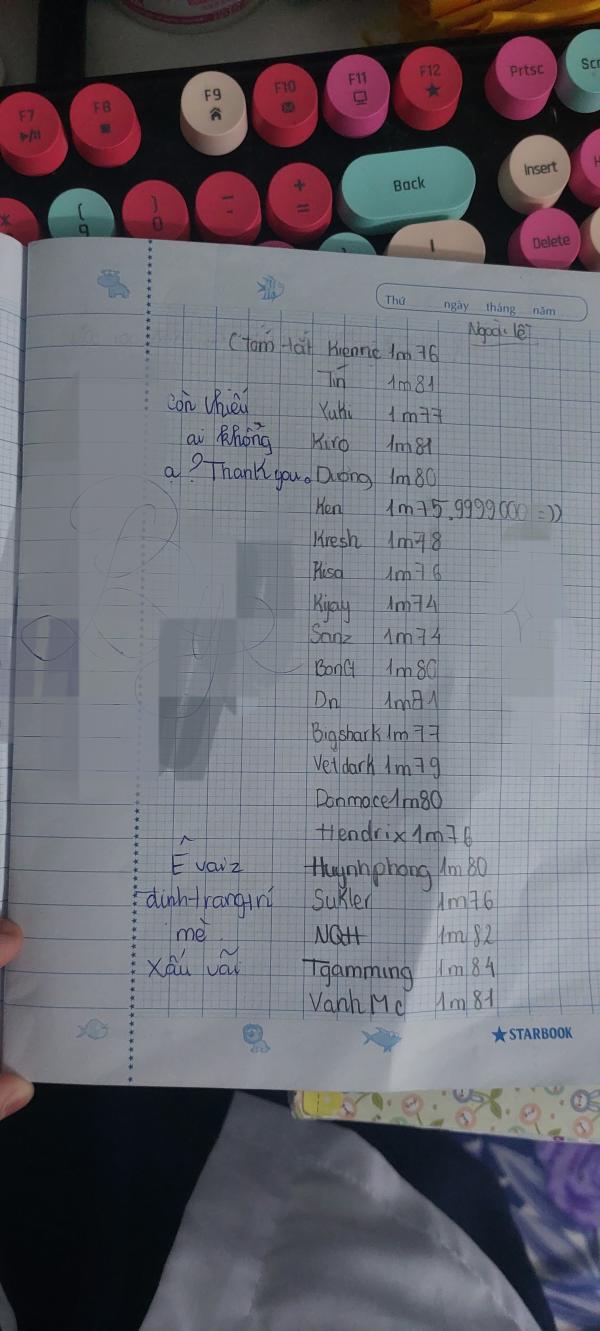 F7
F8
F9
F10
F11
F12
Prtsc
Scr
(
9
)
0
-
+
=
Back
Insert
Delete
Thứ ngày tháng năm
Ngoài lề
(Tóm tắt Kienne 1m76
Tín 1m81
còn thiếu Yuki 1m77
ai không Kiro 1m81
ạ? Thank you. Dương 1m80
Ken 1m75,9999000 =))
Kresh 1m78
Risa 1m76
Kijay 1m74
Sanz 1m74
BonG 1m80
Dn 1m71
Bigshark 1m77
Vetdark 1m79
Donmace 1m80
Hendrix 1m76
Ê vaiz Huynhphong 1m80
định trang trí Sukler 1m76
mè NQH 1m82
xấu vãi Tgamming 1m84
Vanh Mc 1m81
STARBOOK